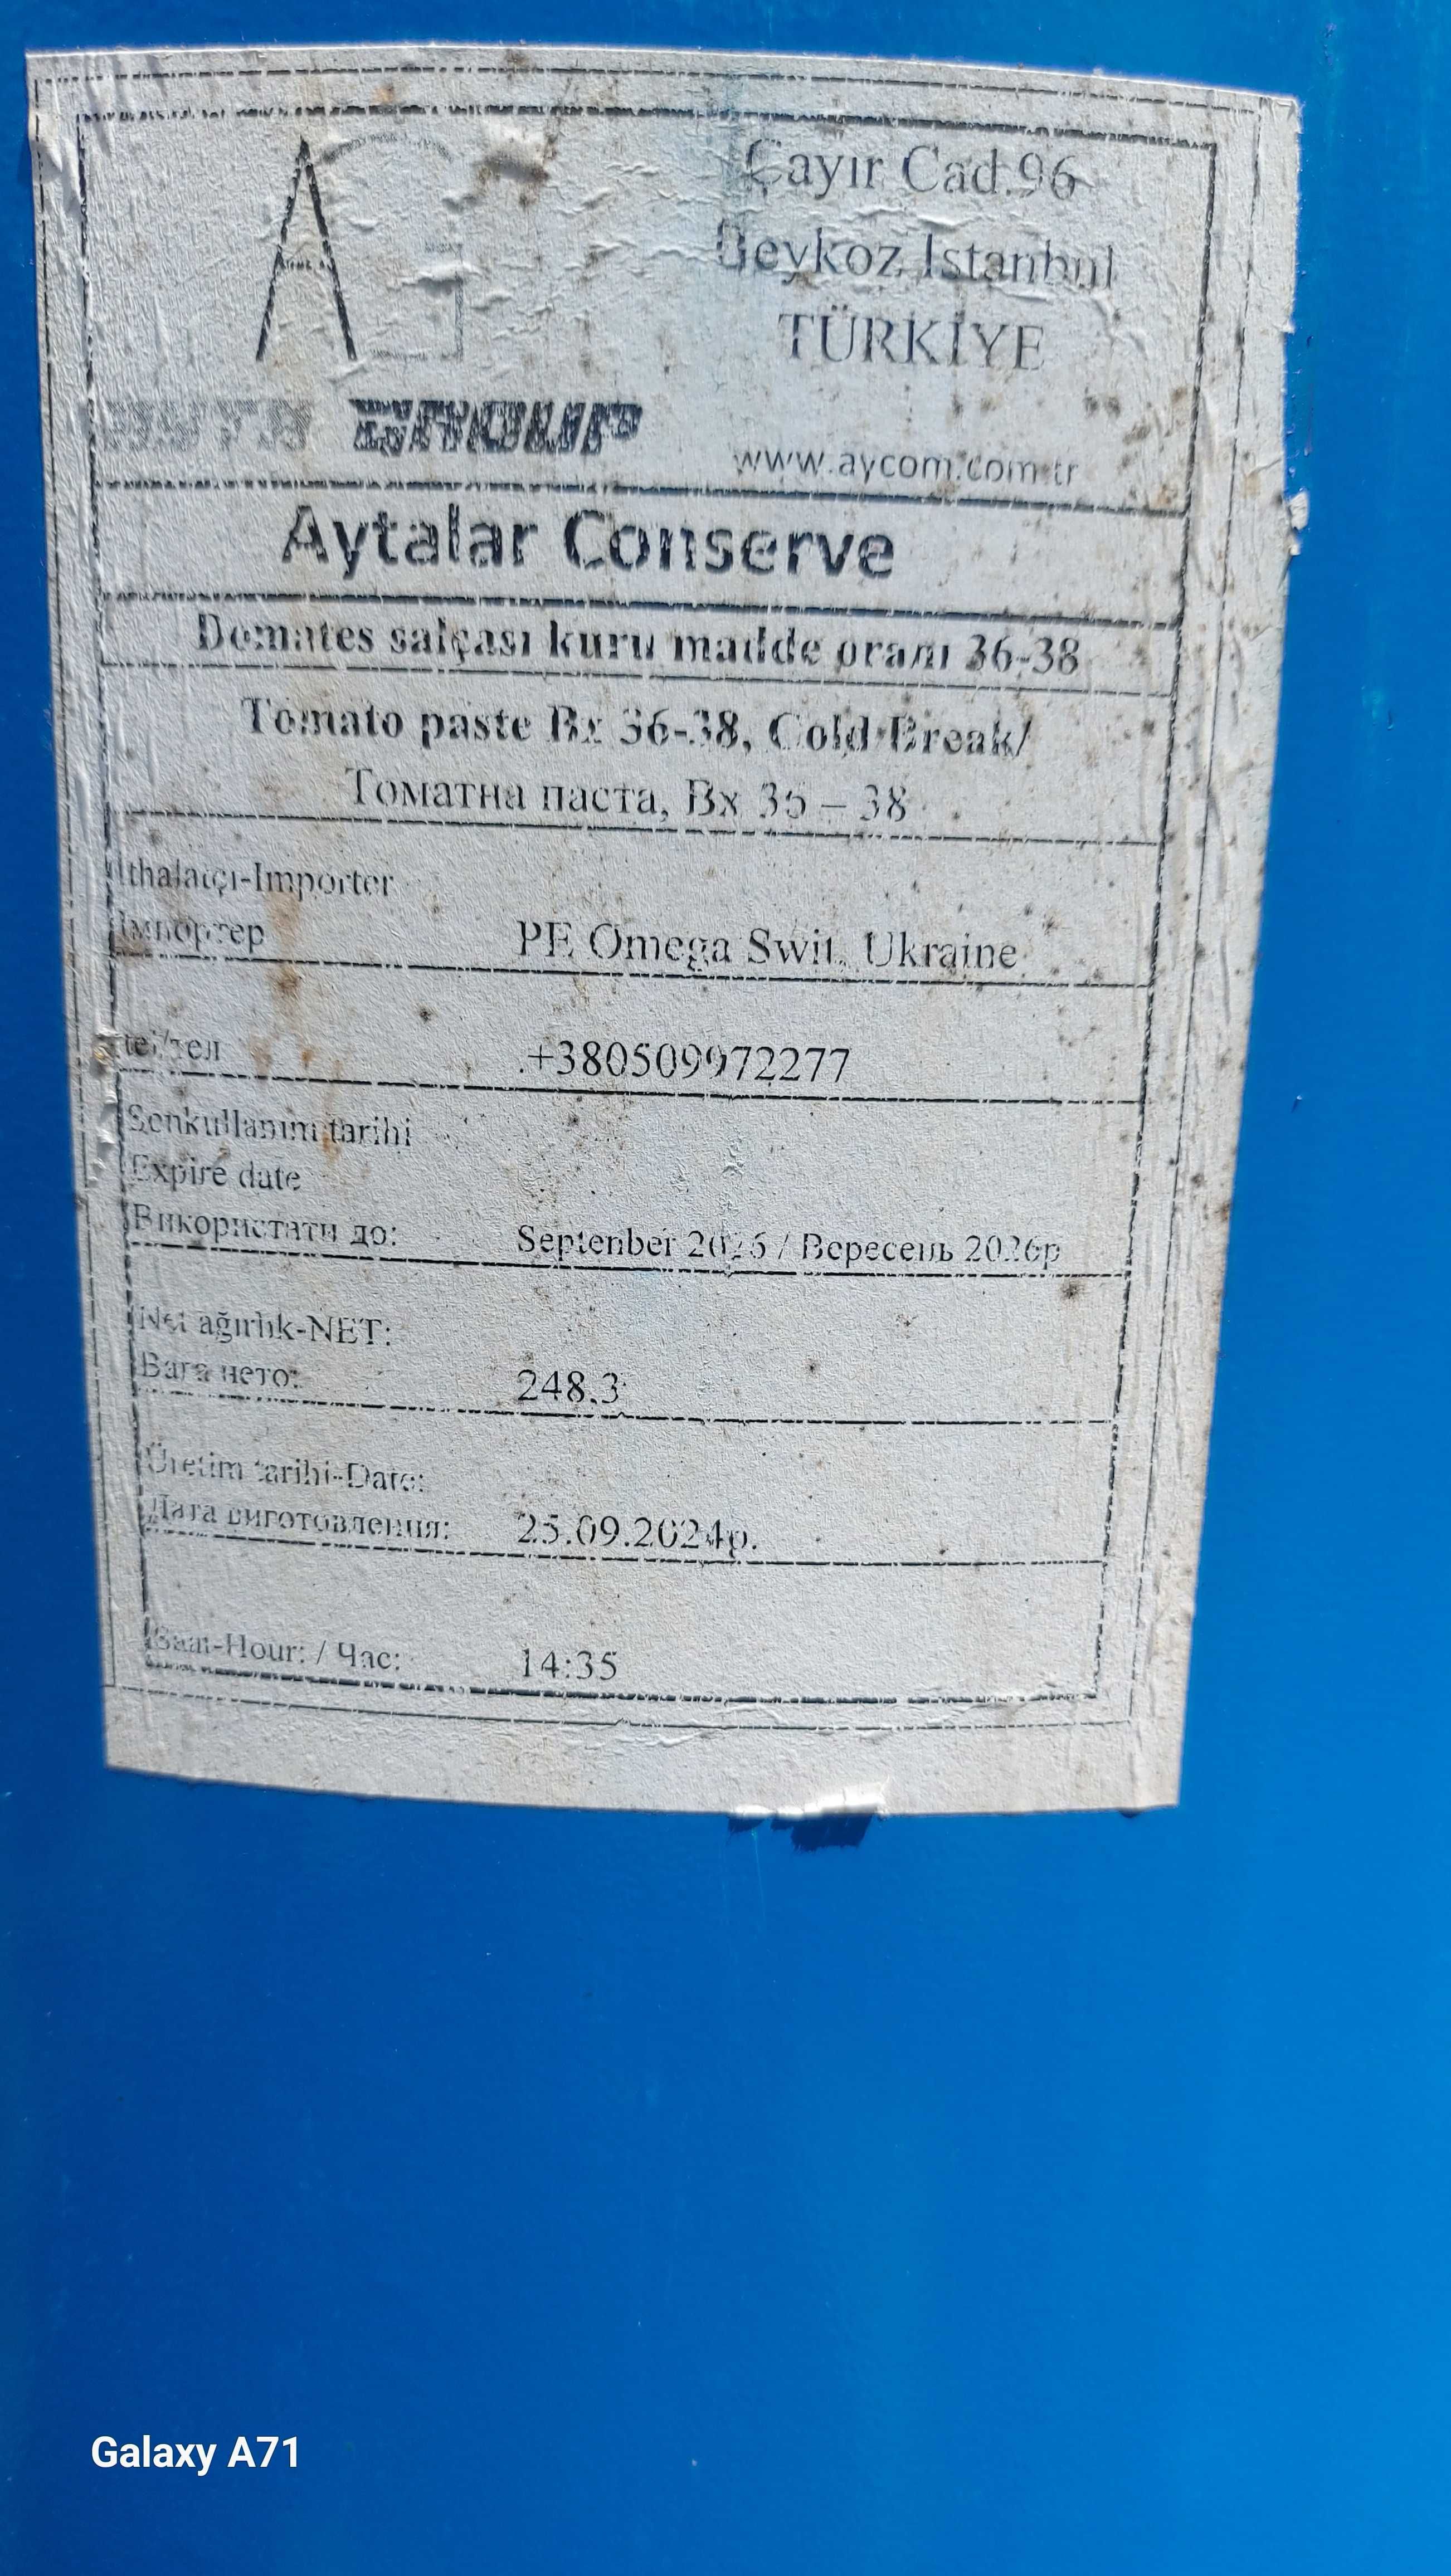 Çayır Cad.96
Beykoz Istanbul
TÜRKİYE
GROUP
www.aycom.com.tr
Aytalar Conserve
Domates salçası kuru madde oranı 36-38
Tomato paste Bx 36-38, Cold Break/
Томатна паста, Вх 36 – 38
Ithalatçı-Importer
Імпортер
PE Omega Swit, Ukraine
tel/тел
+380509972277
Sonkullanım tarihi
Expire date
Використати до:
Septenber 2026 / Вересень 2026р
Net ağırlık-NET:
Вага нето:
248.3
Üretim tarihi-Date:
Дата виготовлення:
25.09.2024р.
Saat-Hour: / Час:
14:35
Galaxy A71